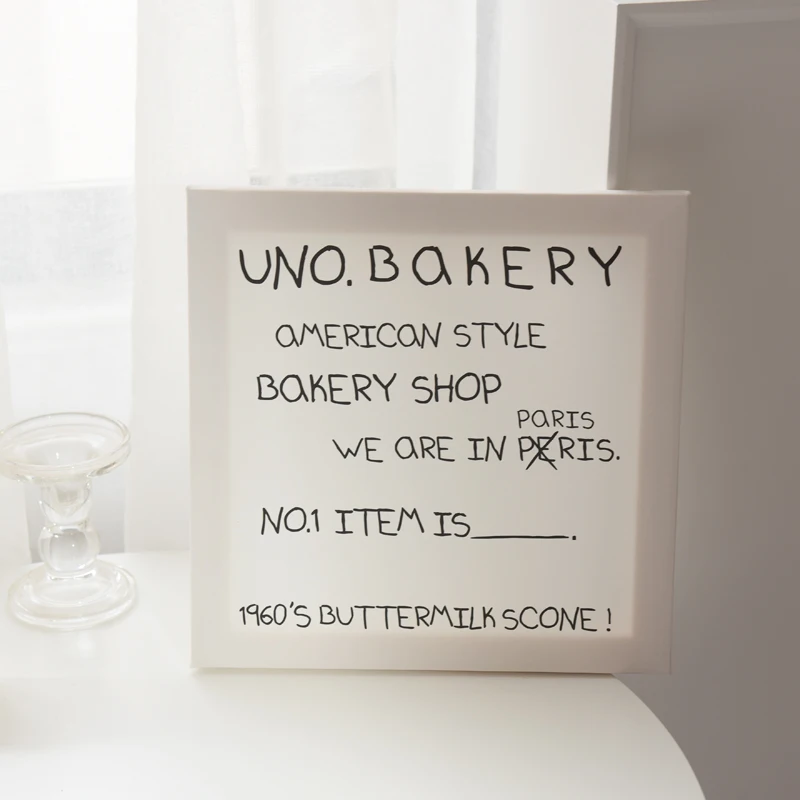 UNO. BAKERY
AMERICAN STYLE
BAKERY SHOP
PARIS
WE ARE IN PERIS.
NO.1 ITEM IS______.
1960'S BUTTERMILK SCONE!